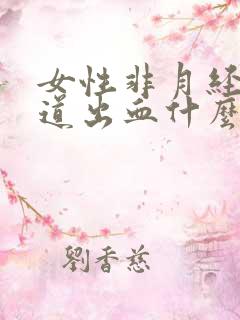 女性非月经
道出血什麼
劉香慈